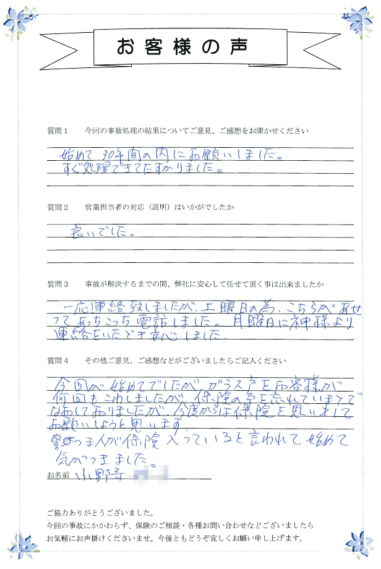 お客様の声
質問１　今回の事故処理の結果についてご意見、ご感想をお聞かせください
始めて30年間の内にお願いしました。
すぐ処理できてたすかりました。
質問２　営業担当者の対応（説明）はいかがでしたか
良いでした。
質問３　事故が解決するまでの間、弊社に安心して任せて頂く事は出来ましたか
一応連絡致しましたが、土曜日の為、こちらが
てあちこち電話しました。月曜日に神様より
連絡をいただき安心しました。
質問４　その他ご意見、ご感想などがございましたらご記入ください
今回が始めてでしたが ガラス戸をお客様が
何回もこわしましたが 保険の事を忘れていますので
なおしておりましたが、今度からは保険を思い
お願いしようと思います。
人が保険入っていると言われて始めて
気がつきました。
お名前　小野寺
ご協力ありがとうございました。
今回の事故にかかわらず、保険のご相談・各種お問い合わせなどございましたら
お気軽にお声掛けくださいませ。今後ともどうぞ宜しくお願い申し上げます。